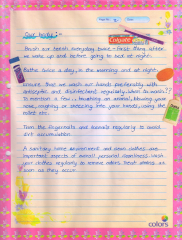 Brush our teeth everyday twice - first thing after
we wake up and before going to bed at night.
Bathe twice a day, in the morning and at night.
Ensure that we wash our hands preferably with
antiseptic and disinfectant regularly. When to wash??
To mention a few, : breathing on animal, blowing your
nose, coughing or sneezing into your hands, using the
toilet etc.
Trim the fingernails and toenails regularly to avoid
dirt accumulation.
A sanitary home environment and clean clothes are
important aspects of overall personal cleanliness. Wash
your clothes regularly to remove odors. Treat stains as
soon as they occur.
colors